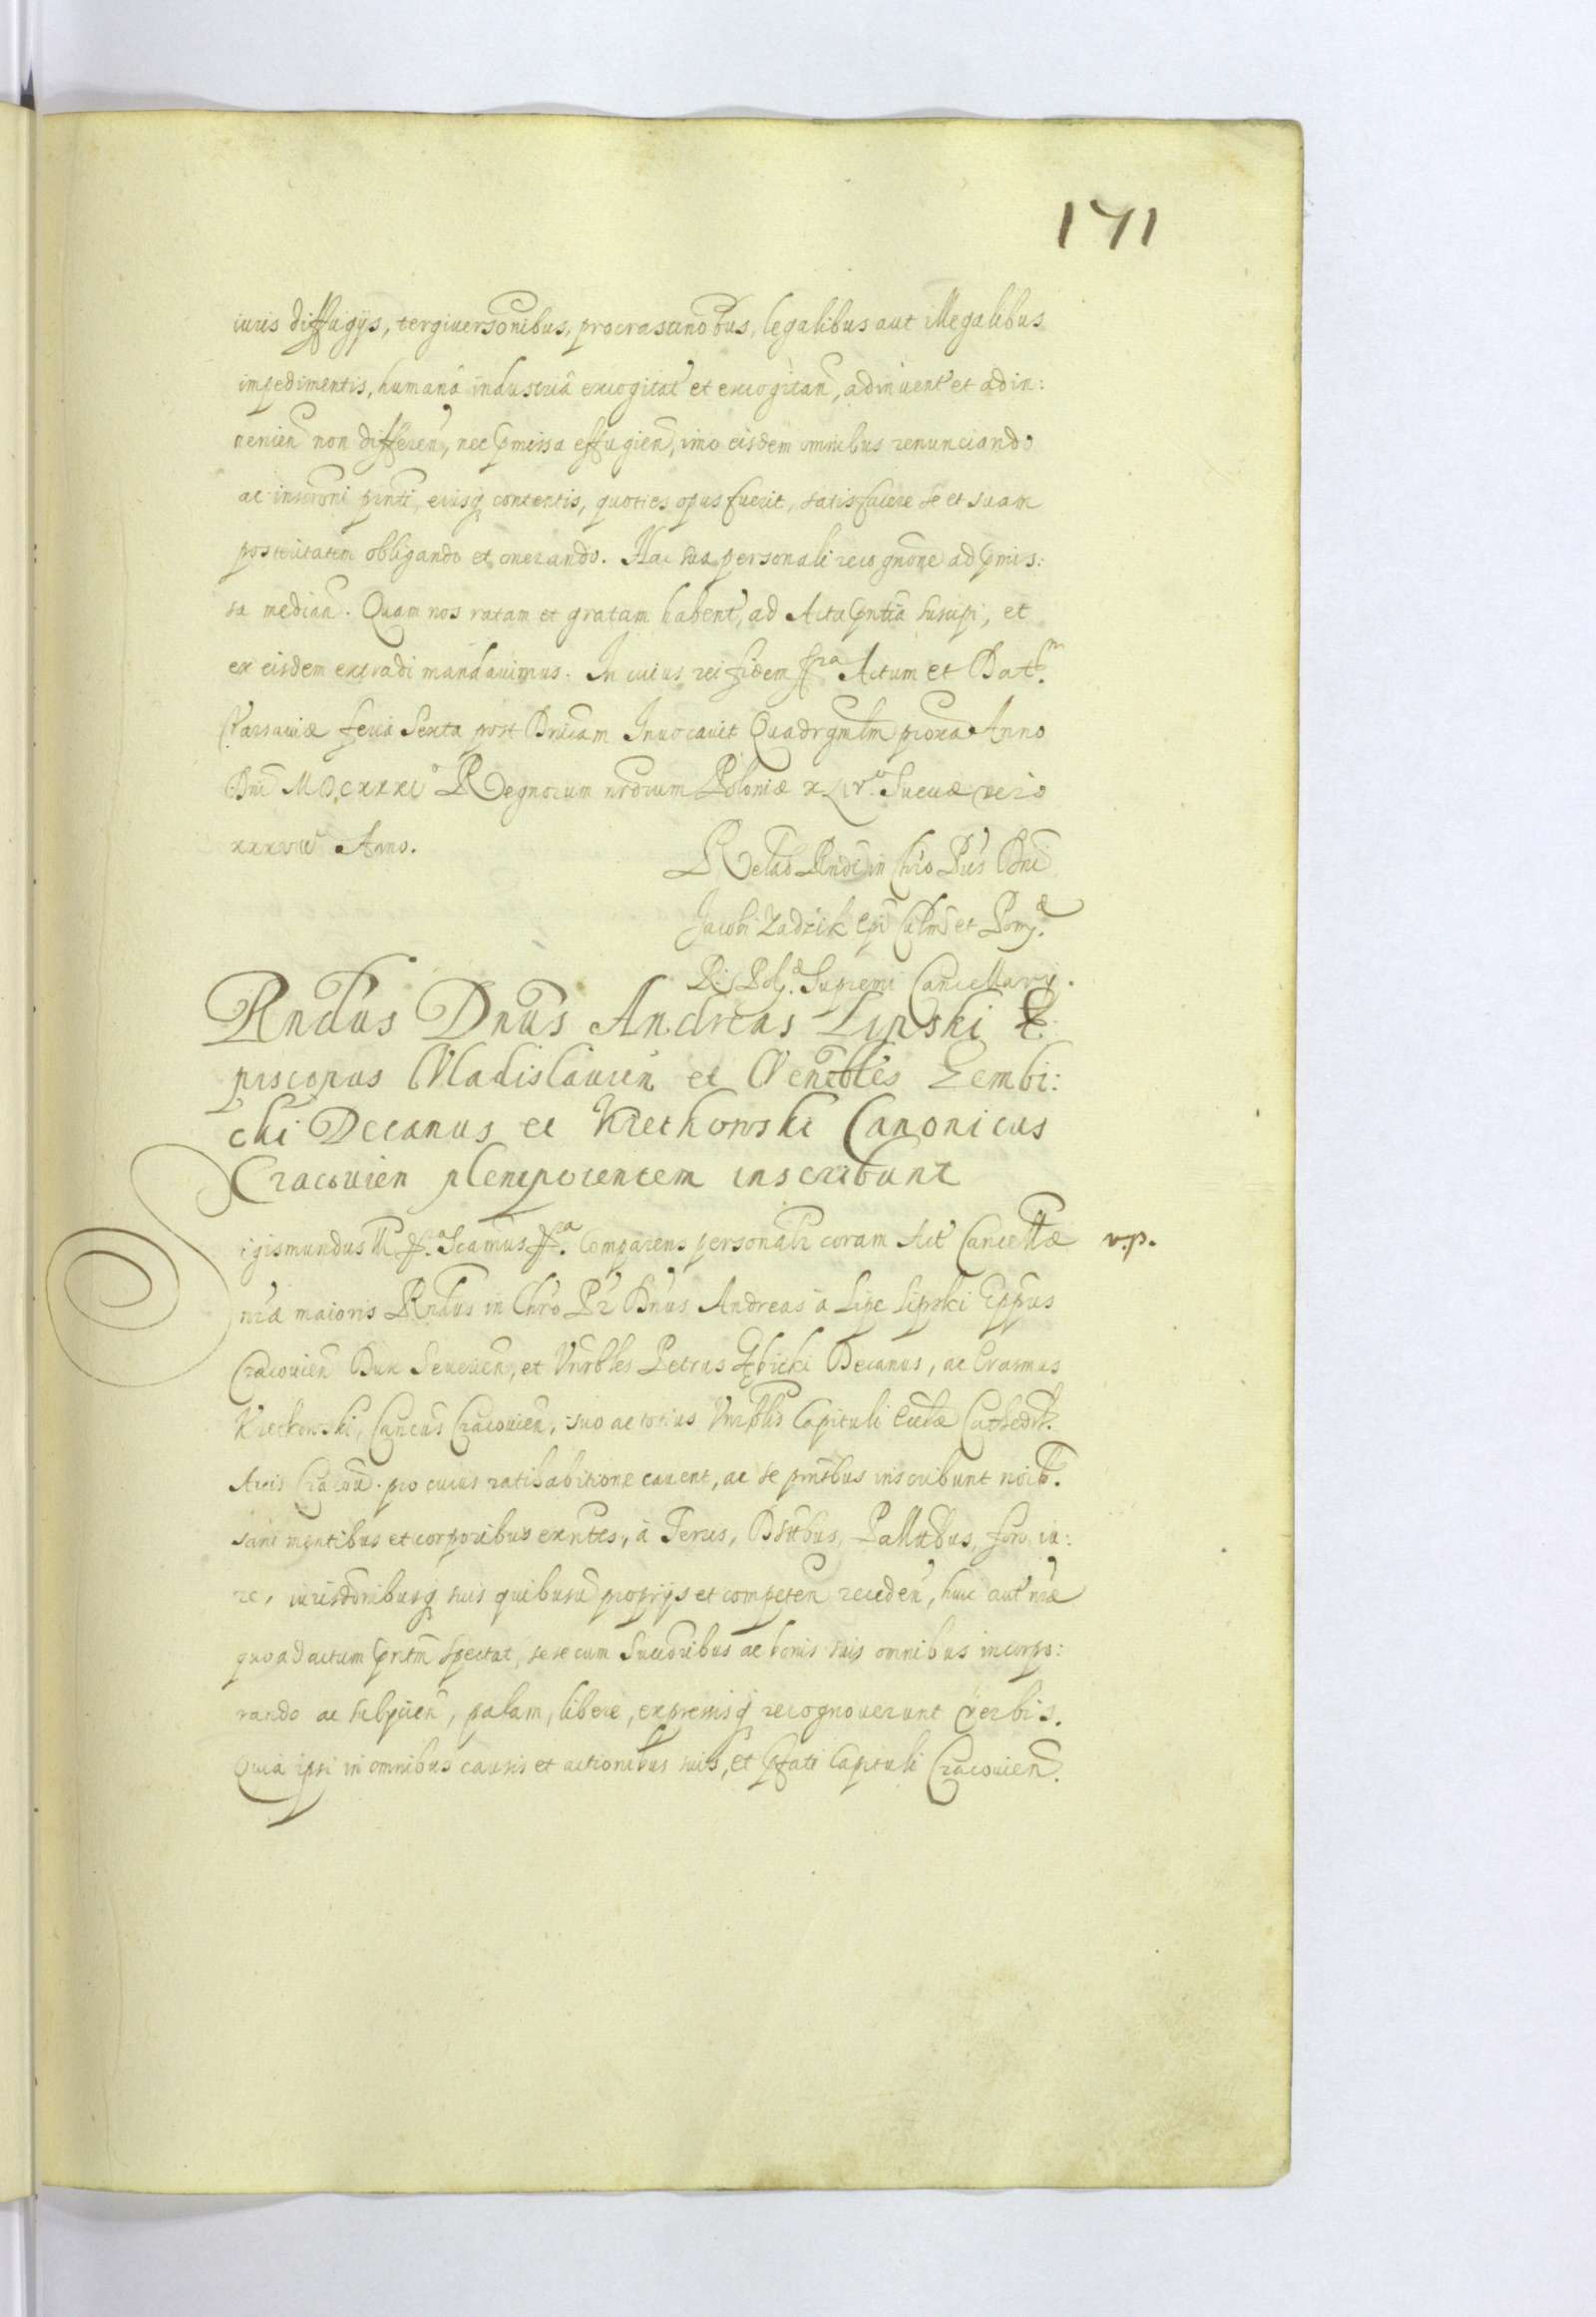 171
iuris diffugijs, tergiuersõnibus, procrastinõbus, legalibus aut illegalibus
impedimentis, humanâ industriâ excogitat' et excogitañ, adinuent' et adin:
uenieñ non differeñ, nec p̃missa effugieñ, imo eisdem omnibus renunciando
ac inscrõni p̃nti, eiusq̃ contentis, quoties opus fuerit, satisfacere se et suam
posteritatem obligando et onerando. Hac sua personali recognõne ad p̃mis:
sa mediañ. Quam nos ratam et gratam habent', ad Acta p̃ntia suscipi, et
ex eisdem extradi mandauimus. In cuius rei fidem ff.ra Actum et Dat.m
Varsauiæ feria Sexta post Dñicam Inuocauit Quadrgmlm proxa Anno
Dñi MDCXXXIo Regnorum nr̃orum Poloniæ XLIV.o Sueciæ vero
xxxviio Anno.
Relão Rñdi in Chr̃o P̃ris Dñi
Jacobi Zadzik Ep̃i Culmeñ et Pom̃.æ
R. Pol.æ Supremi Cancellarij.
Rñdus Dñus Andreas Lipski E:
piscopus Vladislauień et Veñebles Gembi:
cki Decanus et Kretkowski Canonicus
Cracouien plenipotentem inscribunt
Sigismundus III ff.a Scamus ff.ra Comparens personalr coram Act' Cancellæ v.p.
nr̃æ maioris Rñdus in Chr̃o Pr̃ Dñus Andreas à Lipe Lipski Eppus
Cracouień Dux Seuerień, et Vnrbles Petrus Gębicki Decanus, ac Erasmus
Kretkowski, Cañcus Cracouień, suo ac totius Vnrblis Capituli Eccłæ Cathedrł.
Arcis Cracou. pro cuius ratihabitione cauent, ac se p̃ntibus inscribunt noĩe.
sani mentibus et corporibus exñtes, à Terris, Dstbus, Pallatbus, foro, iu:
re, iurisdõnibusq̃ suis quibusuis proprijs et competeñ recedeñ, huic aut' nr̃æ
quoad actum p̃ntm spectat, sese cum Succõribus ac bonis suis omnibus incorpo:
rando ac subijcień, palam, libere, expressisq̃ recognouerunt verbis.
Quia ipsi in omnibus causis et actionibus suis, et p̃fati Capituli Cracouień.